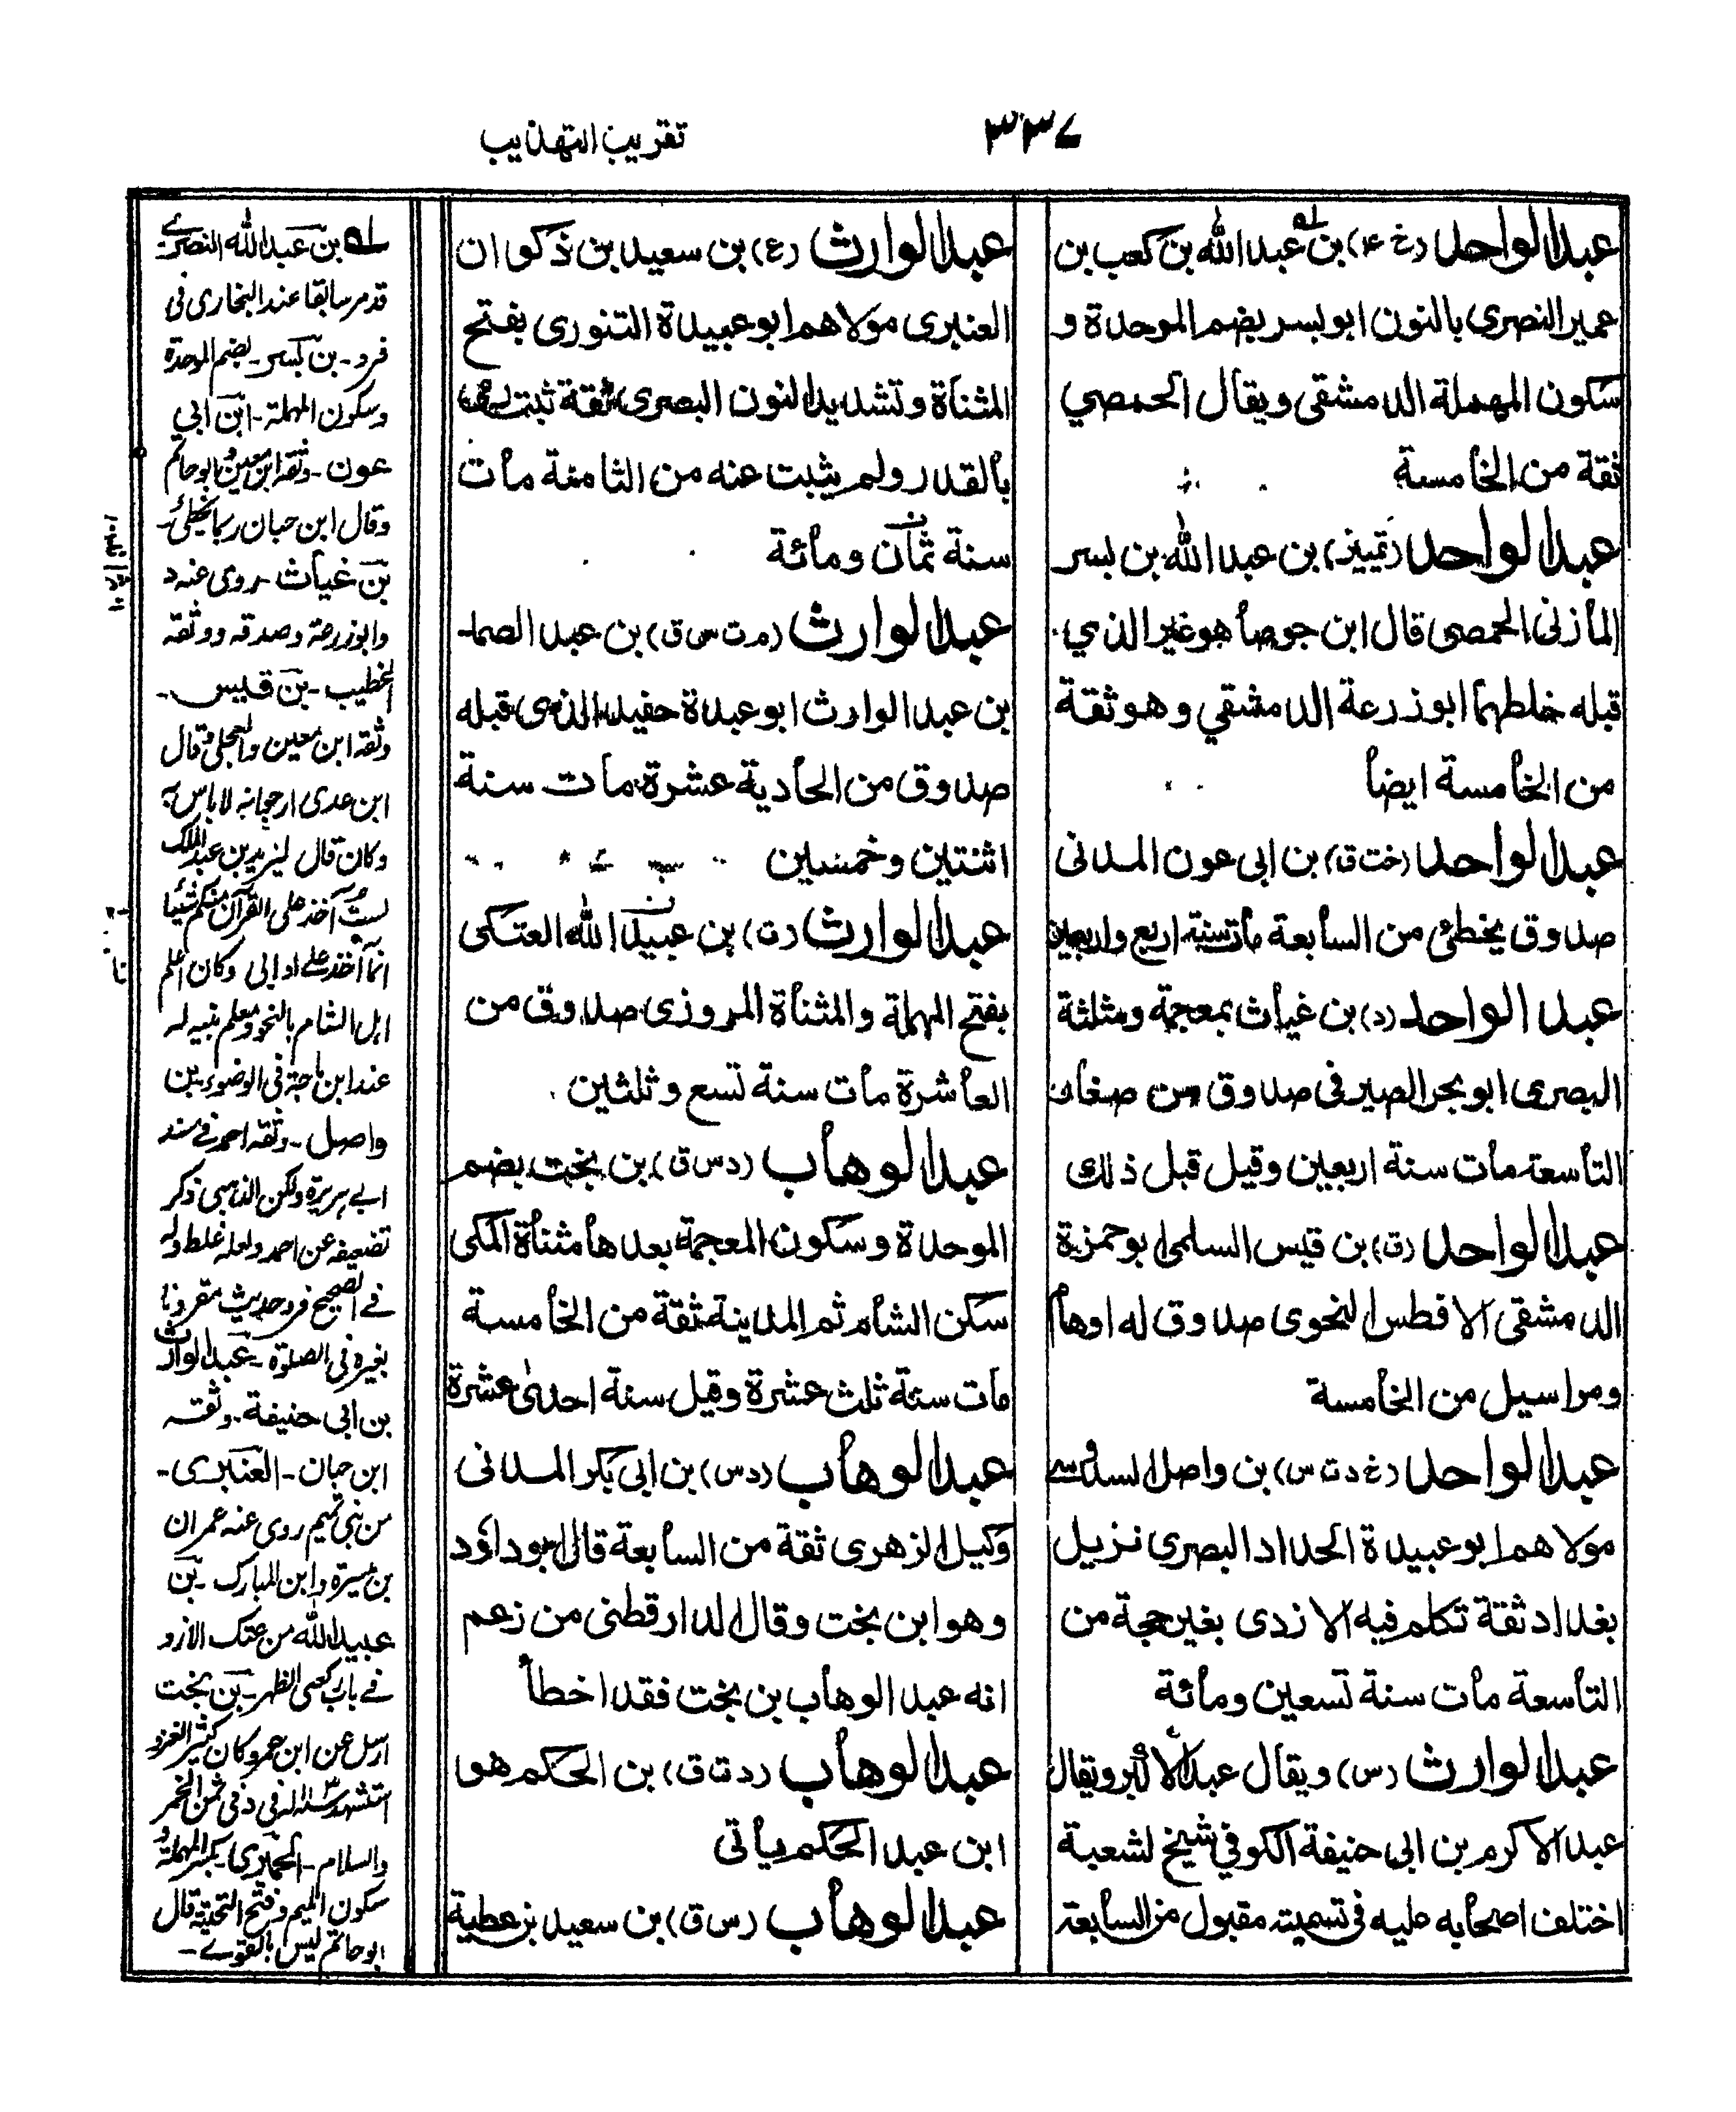 ٣٣٧
تقريب التهذيب
عبد الواحد (خ ۴) بن عبد الله بن كعب بن
عمير النصرى بالنون ابو بسر بضم الموحدة و
سكون المهملة الدمشقى ويقال الحمصي
ثقة من الخامسة
عبد الواحد (تمييز) بن عبد الله بن بسر
المازنى الحمصى قال ابن جوصا هو غير الذي
قبله خلطهما ابو زرعة الدمشقي وهو ثقة
من الخامسة ايضا
عبد الواحد (خت ق) بن ابى عون المدنى
صدوق يخطئ من السابعة مات سنة اربع واربعين
عبد الواحد (د) بن غياث بمعجمة ومثلثة
البصرى ابو بحر الصيرفى صدوق من صغار
التاسعة مات سنة اربعين وقيل قبل ذلك
عبد الواحد (ق) بن قيس السلمى ابو حمزة
الدمشقى الافطس النحوى صدوق له اوهام
ومراسيل من الخامسة
عبد الواحد (خ د ت س) بن واصل السدوسى
مولاهم ابو عبيدة الحداد البصرى نزيل
بغداد ثقة تكلم فيه الازدى بغير حجة من
التاسعة مات سنة تسعين ومائة
عبد الوارث (س) ويقال عبد الاكبر ويقال
عبد الاكرم بن ابى حنيفة الكوفي شيخ لشعبة
اختلف اصحابه عليه فى تسميته مقبول من السابعة
عبد الوارث (ع) بن سعيد بن ذكوان
العنبرى مولاهم ابو عبيدة التنورى بفتح
المثناة وتشديد النون البصرى ثقة ثبت رمى
بالقدر ولم يثبت عنه من الثامنة مات
سنة ثمان ومائة
عبد الوارث (م ت س ق) بن عبد الصمد
بن عبد الوارث ابو عبدة حفيد الذى قبله
صدوق من الحادية عشرة مات سنة
اثنتين وخمسين
عبد الوارث (ت) بن عبيد الله العتكى
بفتح المهملة والمثناة المروزى صدوق من
العاشرة مات سنة تسع وثلثين
عبد الوهاب (د س ق) بن بخت بضم
الموحدة وسكون المعجمة بعدها مثناة المكى
سكن الشام ثم المدينة ثقة من الخامسة
مات سنة ثلث عشرة وقيل سنة احدى عشرة
عبد الوهاب (د س) بن ابى بكر المدنى
وكيل الزهرى ثقة من السابعة قال ابو داؤد
وهو ابن بخت وقال الدارقطنى من زعم
انه عبد الوهاب بن بخت فقد اخطأ
عبد الوهاب (د ت ق) بن الحكم هو
ابن عبد الحكم يأتى
عبد الوهاب (س ق) بن سعيد بن عطية
له بن عبد الله النصرے
قد مر سابقا عند البخارى فى
فرد - بن بسر - بضم الموحدة
وسكون المهملة - ابن ابى
عون - وثقه ابن معين وابو حاتم
وقال ابن حبان ربما يخطئ -
بن غياث - روى عنه د
وابو زرعة وصدقه ووثقه
الخطيب - بن قيس -
وثقه ابن معين والعجلى وقال
ابن عدى ارجو انه لا باس به
وكان قال ليزيد بن عبد الملك
لست آخذ على القرآن منكم شيئا
انما آخذ على ادابى وكان اعلم
اهل الشام بالنحو ومعلم بنيه له
عند ابن ماجة فى الوضوء - بن
واصل - وثقه احمد فے مسند
ابے ہريرة ولكن الذہبى ذكر
تضعيفه عن احمد ولعله غلط وله
فے الصحيح فرد حديث مقرونا
بغيره فى الصلوة - عبد الوارث
بن ابى حنيفة - وثقه
ابن حبان - العنبرى -
من بنى تميم روى عنه عمران
بن ميسرة وابن المبارك - بن
عبيد الله من عتك الازد
فے باب ركعتى الظهر - بن بخت
ارسل عن ابن عمر وكان كثير الغزو
استشهد له فى د فى ثمن الخمر
والسلام - الحميرى - بكسر المهملة و
سكون الميم وفتح التحتية قال
ابو حاتم ليس بالقوے -